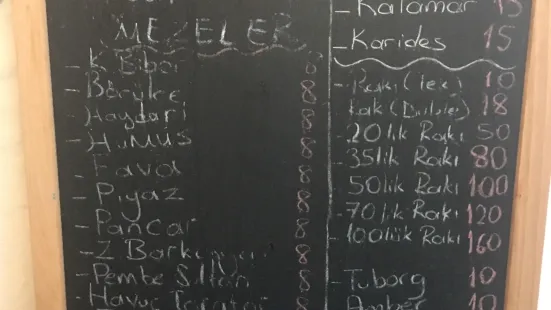 MEZELER
- K. Biber 8
- Börülce 8
- Haydari 8
- HUMUS 8
- Fava 8
- Piyaz 8
- Pancar 8
- Z 8
- Pembe Sultan 8
- Havuç Tarator 8
- Kalamar 15
- Karides 15
- Rakı (Tek) 10
- Rakı (Duble) 18
- 20lik Rakı 50
- 35lik Rakı 80
- 50lik Rakı 100
- 70lik Rakı 120
- 100lük Rakı 160
- Tuborg 10
- Amber 10